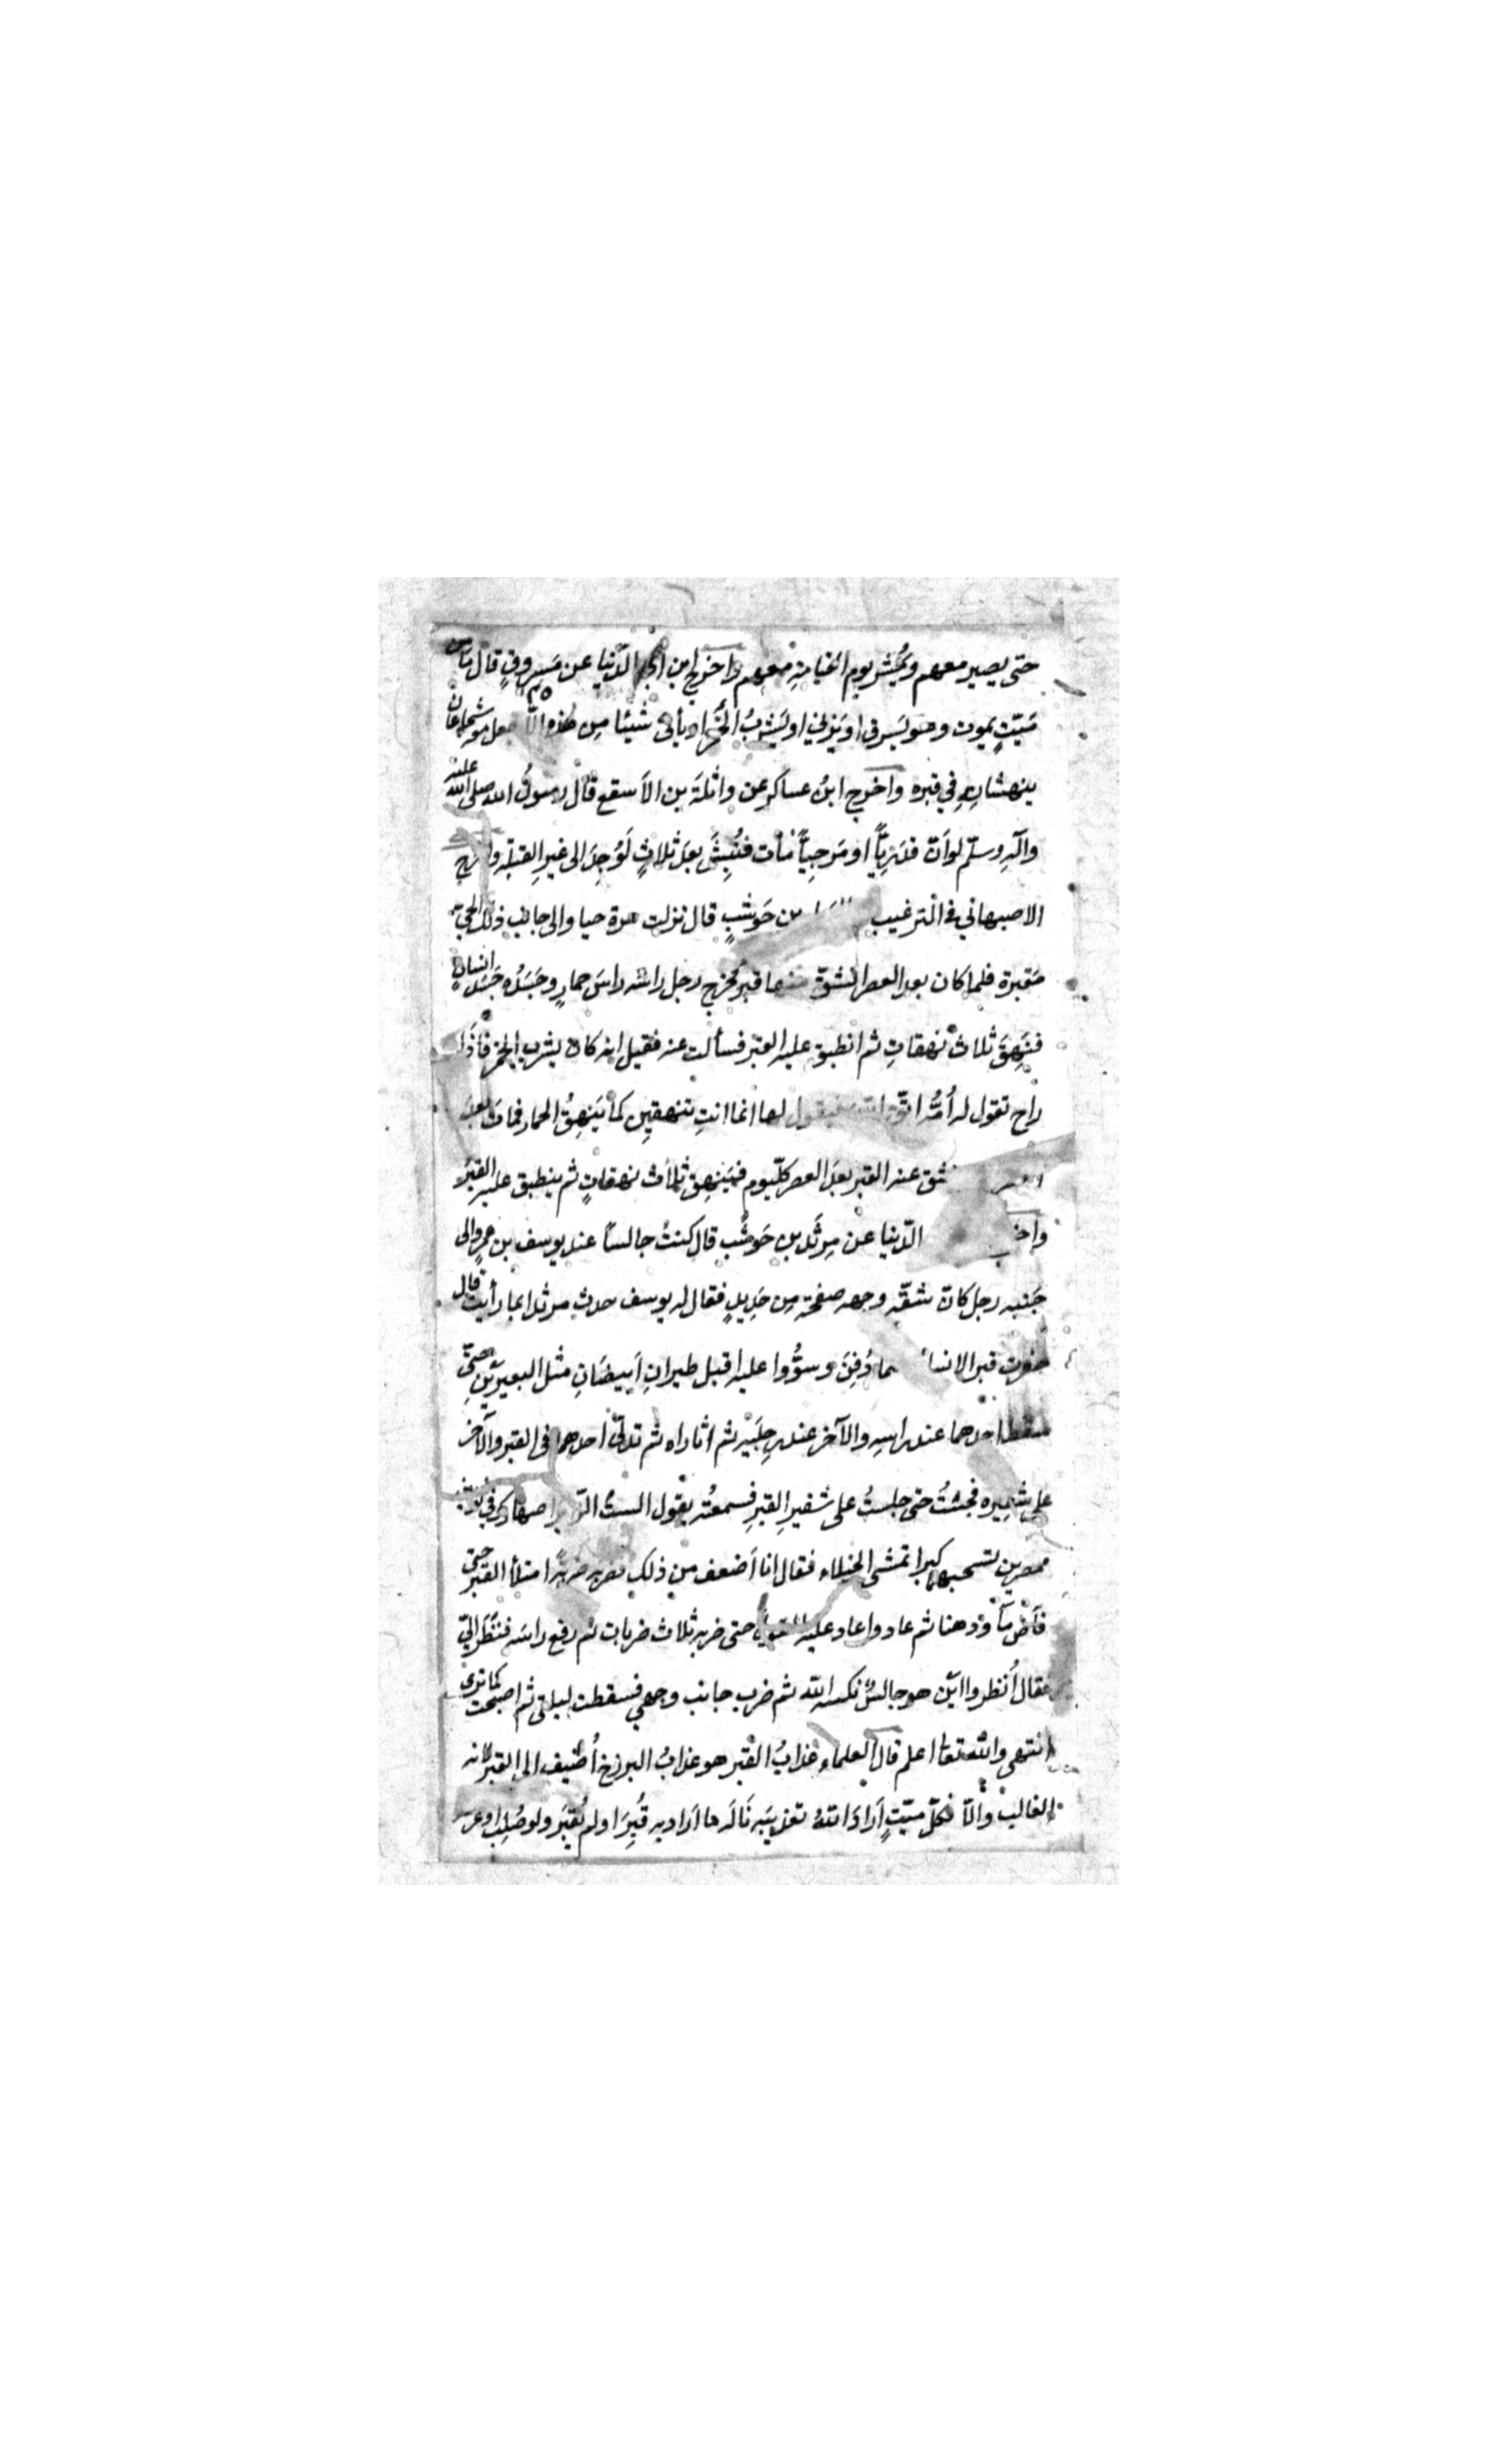 حتى يصير معهم ويُحشر يوم القيامةِ معهم واخرج ابن ابي الدّنيا عن مَسروقٍ قال ما من
مَيّتٍ يموت وهو يَسرق او يَزني او يَشربُ الخَمر او يأتي شيئًا مِن هٰذه الا جعل معه شجاعان
ينهشانِهِ في قبره واخرج ابنُ عساكر عن واثلةَ بن الاَسقع قال رسولُ الله صلى الله عليه
وآلهِ وسلّم لو اَنّ قدَرِيّاً او مَرجِيّاً مات فنُبِشَ بعدَ ثلاثٍ لَوُجِدَ الى غيرِ القبلة واخرج
الاصبهاني في الترغيب بن حَوشَبٍ قال نزلت مرة حيا والى جانب ذلك الحيّ
مَقبرة فلما كان بعد العصر انشقّ منها قبر فخرج رجل راسُه راسَ حمارٍ وجَسَدُه جَسَدُ انسانٍ
فنَهِقَ ثلاثَ نهقاتٍ ثم انطبق عليه القبر فسألت عنه فقيل انه كان يشرب الخمر فاذا
راح تقول له اُمُّه اتّق الله فيقول لها انما انتِ تنهقينِ كما يَنهقُ الحمار فمات بعدَ
العصر شق عنه القبر بعدَ العصر كلّ يوم فيَنهق ثلاث نهقاتٍ ثم ينطبق عليه القبَر
واخـ الدّنيا عن مرثَد بن حَوشَب قال كنتُ جالسًا عند يوسف بن عمرٍ والى
جَنبه رجل كانّ شقّه وجهه صفحة مِن حَدِيدٍ فقال له يوسف حدث مرثدا بما رأيت قال
حفرت قبر الانسان فلما دُفِنَ وسوُّوا عليه اقبل طيرانِ اَبيضَانِ مثل البعيرَينِ حتىّ
سقط احدهما عند راسِه والآخر عند رِجلَيه ثم اثاراه ثم تدلىّ احدهما فى القبر والآخر
على شفيره فجئتُ حتى جلستُ على شفيرِ القبرِ فسمعتُه يقول الستُ الزائر اصهارك فى ثوبَينِ
ممصرين تسحبهما كبرا تمشى الخيلاء فقال انا اَضعف من ذلك فضربه ضربةً امتلأ القبر حتى
فاَض ماً ودهنا ثم عاد واعاد عليه القول حتى ضربه ثلاث ضربات ثم رفع راسَه فنَظَر اليّ
فقال اُنظروا ايَن هو جالسٌ نكسه الله ثم ضرب جانب وجهي فسقطت ليلتى ثم اصبحت كما ترى
انتهى والله تعالى اعلم قال العلماء عذابُ القبر هو عذابُ البرزخ اُضيف الى القبر لانه
الغالب والّا فكلّ ميّتٍ اَرادَ اللهُ تعذيبَه نَالَه ما اَراد به قُبِرَ او لم يُقبَر ولو صُلِبَ او